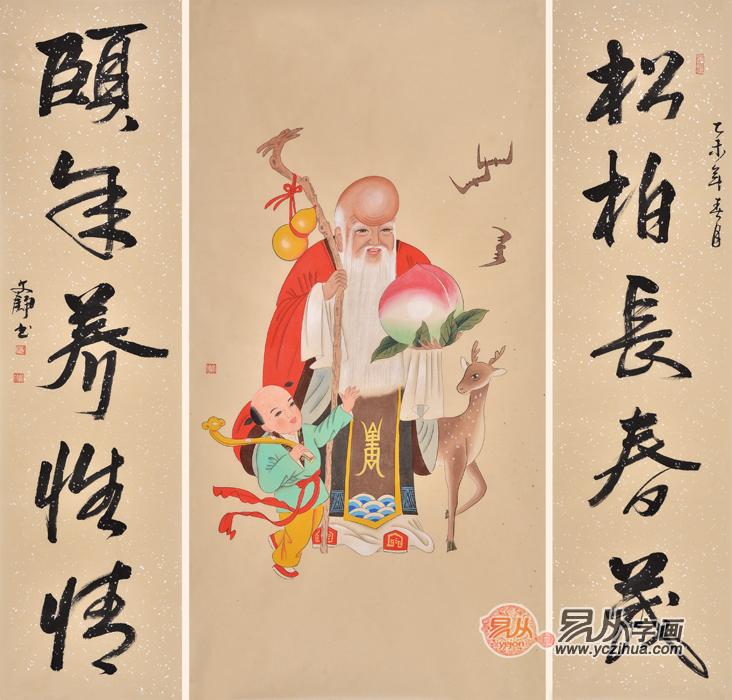 松柏長春茂
乙未年春月
頤年养性情
文静书
易从
易从字画
www.yczihua.com